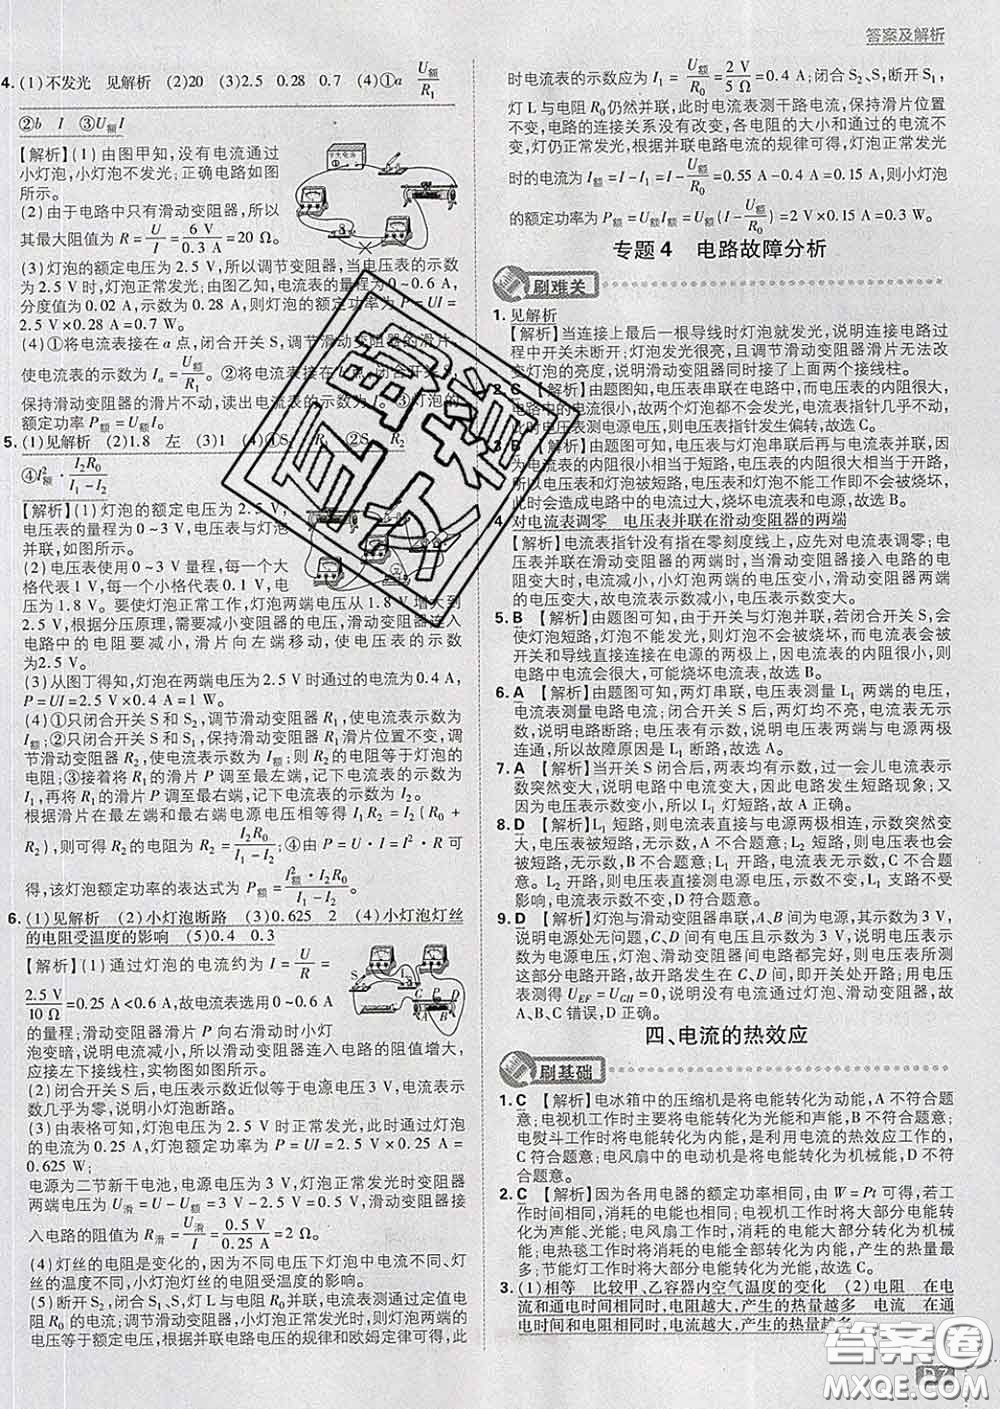 答案及解析
4. (1)不发光 见解析 (2)20 (3)2.5 0.28 0.7 (4)①a U额/R₁
②b I ③U额I
【解析】(1)由图甲知，没有电流通过
小灯泡，小灯泡不发光；正确电路如图
所示。
(2)由于电路中只有滑动变阻器，所以
其最大阻值为 R=U/I=6 V/0.3 A=20 Ω。
(3)灯泡的额定电压为 2.5 V，所以调节变阻器，当电压表的示数
为 2.5 V 时，灯泡正常发光；由图乙知，电流表的量程为 0~0.6 A，
分度值为 0.02 A，示数为 0.28 A，则灯泡的额定功率为 P=UI=
2.5 V×0.28 A=0.7 W。
(4)①将电流表接在 a 点，闭合开关 S，调节滑动变阻器的滑片，
使电流表的示数为 Iₐ=U额/R₁。②将电流表接在 b 点，闭合开关 S，
保持滑动变阻器的滑片不动，读出电流表的示数为 I。③灯泡的
额定功率 P额=U额I。
5. (1)见解析 (2)1.8 左 (3)1 (4)①S R₁ ②S R₂
④I额²·I₂R₀/(I₁-I₂)
【解析】(1)灯泡的额定电压为 2.5 V，
电压表的量程为 0~3 V，电压表与灯泡
并联，如图所示。
(2)电压表使用 0~3 V 量程，每一个大
格代表 1 V，每一个小格代表 0.1 V，电压
为 1.8 V。要使灯泡正常工作，灯泡两端电压从 1.8 V 增大到
2.5 V，根据分压原理，需要减小变阻器的电压，滑动变阻器连入
电路中的电阻要减小，滑片向左端移动，使电压表的示数
为2.5 V。
(3)从图丁得知，灯泡在两端电压为 2.5 V 时通过的电流为 0.4 A，
P=UI=2.5 V×0.4 A=1 W。
(4)①只闭合开关 S 和 S₂，调节滑动变阻器 R₁，使电流表示数为
I额；②只闭合开关 S 和 S₁，保持滑动变阻器 R₁ 滑片位置不变，调
节滑动变阻器 R₂，使电流表示数为 I额；则 R₂ 的电阻等于灯泡的
电阻；③接着将 R₁ 的滑片 P 调至最左端，记下电流表示数为
I₁，再将 R₁ 的滑片 P 调至最右端，记下电流表示数为 I₂。
根据滑片在最左端和最右端电源电压相等得 I₁R₂=I₂(R₀+
R₂)，则可得 R₂ 的电阻为 R₂=I₂R₀/(I₁-I₂)；④由 P=U·I=I²·R 可
得，该灯泡额定功率的表达式为 P额=I额²·I₂R₀/(I₁-I₂)
6. (1)见解析 (2)小灯泡断路 (3)0.625 2 (4)小灯泡灯丝
的电阻受温度的影响 (5)0.4 0.3
【解析】(1)通过灯泡的电流约为 I=U/R=
2.5 V/10 Ω=0.25 A<0.6 A，故电流表选用 0~0.6 A
的量程；滑动变阻器滑片 P 向右滑动时小灯
泡变暗，说明电流减小，所以滑动变阻器连入电路的阻值增大，
应接左下接线柱，实物图如图所示。
(2)闭合开关 S 后，电压表示数近似等于电源电压 3 V，电流表示
数几乎为零，说明小灯泡断路。
(3)由表格可知，灯泡电压为 2.5 V 时正常发光，此时灯泡的电
流为 0.25 A，灯泡的额定功率为 P=UI=2.5 V×0.25 A=
0.625 W；
电源为二节新干电池，电源电压为 3 V，灯泡正常发光时变阻器
两端电压为 U滑=U-U额=3 V-2.5 V=0.5 V，滑动变阻器接
入电路的电阻为 R滑=U滑/I=0.5 V/0.25 A=2 Ω。
(4)灯丝的电阻是变化的，因为不同电压下灯丝中电流不同、灯
丝的温度不同，小灯泡的电阻受温度的影响。
(5)断开 S₂，闭合 S、S₁，灯 L 与电阻 R₀ 并联，电流表测通过定值电
阻 R₀ 的电流，移动滑片，当电流表示数为 0.4 A 时，灯泡两端电压
等于额定电压，根据并联电路电压的规律和欧姆定律可得，此
时电流表的示数应为 I₁=U额/R₀=2 V/5 Ω=0.4 A；闭合 S₂、S，断开 S₁，
灯 L 与电阻 R₀ 仍然并联，此时电流表测干路电流，保持滑片位置
不变，电路的连接关系没有改变，各电阻的大小和通过的电流不
变，灯仍正常发光，根据并联电路电流的规律可得，灯泡正常发光
时的电流为 I额=I-I₁=I-U额/R₀=0.55 A-0.4 A=0.15 A，则小灯泡
的额定功率为 P额=U额I额=U额(I-U额/R₀)=2 V×0.15 A=0.3 W。
专题 4 电路故障分析
刷难关
1. 见解析
【解析】当连接上最后一根导线时灯泡就发光，说明连接电路过
程中开关未断开；灯泡发光很亮，且调节滑动变阻器滑片无法改
变灯泡的亮度，说明滑动变阻器同时接了上面两个接线柱。
2. C 【解析】由题图知，电压表串联在电路中，而电压表内阻很大，
电路中的电流很小，故两个灯泡都不会发光，电流表指针几乎不动，
电压表测电源电压，则电压表指针发生偏转，故选 C。
3. B 【解析】由题图可知，电压表与灯泡串联后再与电流表并联，因
电流表的内阻很小相当于短路，电压表的内阻很大相当于断路，
所以电压表和灯泡被短路，电压表和灯泡不能工作即不会损坏，
此时会造成电路中的电流过大，烧坏电流表和电源，故选 B。
4. 对电流表调零 电压表并联在滑动变阻器的两端
【解析】电流表指针没有指在零刻度线上，应先对电流表调零；电
压表并联在滑动变阻器两端时，当滑动变阻器接入电路的电
阻变大时，电流减小，小灯泡两端的电压减小，滑动变阻器两端
的电压变大，故电流表示数减小，电压表示数变大。
5. B 【解析】由题图可知，由于开关与灯泡并联，若闭合开关 S，会
使灯泡短路，灯泡不能发光，则灯泡不会被烧坏，而电流表会被
开关和导线直接连接在电源的两极上，因电流表的内阻很小，则
电路中电流会很大，可能烧坏电流表，故选 B。
6. A 【解析】由题图可知，两灯串联，电压表测量 L₁ 两端的电压，
电流表测量电路电流；闭合开关 S 后，两灯均不亮，电流表无示
数，说明电路断路；电压表有示数，说明电压表两端与电源两极
连通，所以故障原因是 L₁ 断路，故选 A。
7. A 【解析】当开关 S 闭合后，两表均有示数，过一会儿电流表示
数突然变大，说明电路中电流变大，因此电路发生短路现象；又
因为电压表示数变小，所以 L₁ 灯短路，故 A 正确。
8. D 【解析】L₁ 短路，则电流表直接与电源两极相连，示数突然变
大，电压表被短路，无示数，A 不合题意；L₂ 短路，则电压表也会
被短路，无示数，B 不合题意；L₁ 开路，电流表无示数，C 不合题
意；L₂ 开路，则电压表直接测电源电压，示数变大，L₁ 支路不受
影响，电流表示数不变，D 符合题意。
9. D 【解析】灯泡与滑动变阻器串联，A、B 之间为电源，示数为 3 V，
说明电源处无问题，C、D 之间有电压且大小为 3 V，说明除 C、D
段外，电源、灯泡、滑动变阻器间电路都完好，则电压表所测
这部分电路开路，故开关处开路，即 C、D 间开路；用电压
表测得 U_EF=U_GH=0，说明没有电流通过灯泡、滑动变阻器，故
A、B、C 错误，D 正确。
四、电流的热效应
刷基础
1. C 【解析】电冰箱中的压缩机是将电能转化为动能，A 不符合题
意；电视机工作时主要将电能转化为光能和声能，B 不符合题意；
电熨斗工作时将电能转化为内能，是利用电流的热效应工作的，
C 符合题意；电风扇中的电动机是将电能转化为机械能，D 不符
合题意。
2. C 【解析】因为各用电器的额定功率相同，由 W=Pt 可得，若工
作时间相同，则消耗的电能相同；电视机工作时将电能大部分转
化为声能、光能；电风扇工作时，消耗的电能大部分转化为机械
能；电热毯工作时将消耗的电能转化为内能，产生的热量最
多；节能灯工作时将电能大部分转化为光能，故选 C。
3. (1)相等 比较甲、乙容器内空气温度的变化 (2)电阻 在电
流和通电时间相同时，电阻越大，产生的热量越多 电流 在通
电时间和电阻相同时，电流越大，产生的热量越多
答案圈
MXQE.COM
D7